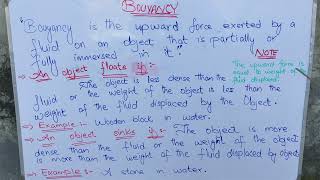 BOUYANCY
"Bouyancy is the upward force exerted by a
fluid on an object that is partially or
fully immersed in it."
NOTE
The upward force is
equal to weight of
fluid displaced.
→ An object floats if:-
The object is less dense than the
fluid or the weight of the object is less than the
weight of the fluid displaced by the Object.
→ Example:- Wooden block in water.
→ An object sinks if:- The object is more
dense than the fluid or the weight of the object
is more than the weight of the fluid displaced by object
→ Example:- A stone in water.